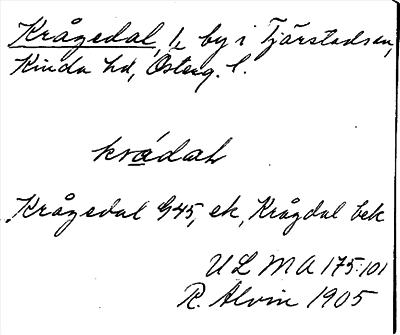 Krågedal, 1/2 by i Tjärstad sn,
Kinda hd, Österg. l.
kvádal
Krågedal G45, ek, Krågdal bek
ULMA 175:101
R. Alvin 1905